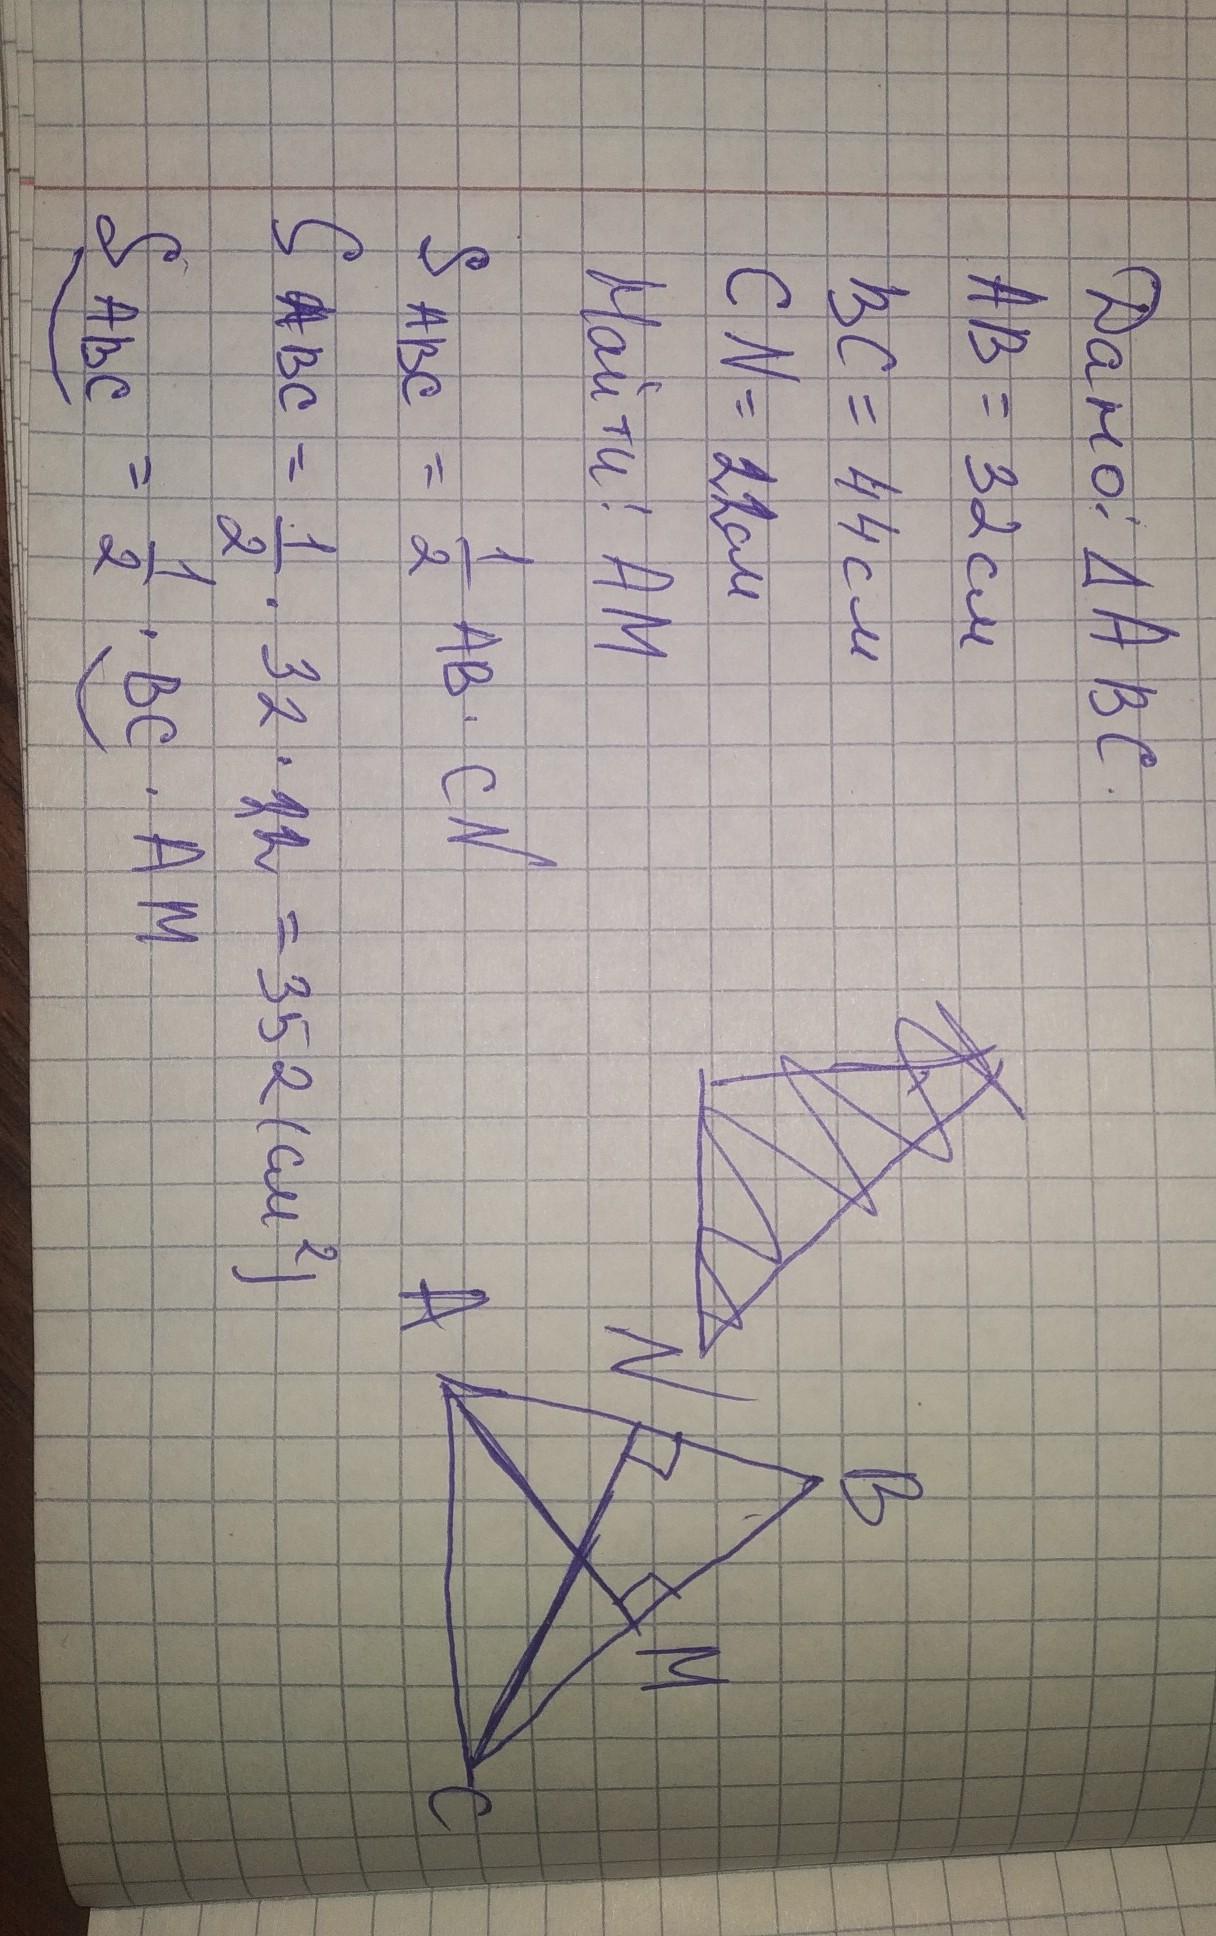 Дано: Δ ABC.
AB = 32см
BC = 44см
CN = 22см
Найти: AM
S ABC = 1/2 AB · CN
S ABC = 1/2 · 32 · 22 = 352 (см²)
S ABC = 1/2 · BC · AM
B
N
M
A
C